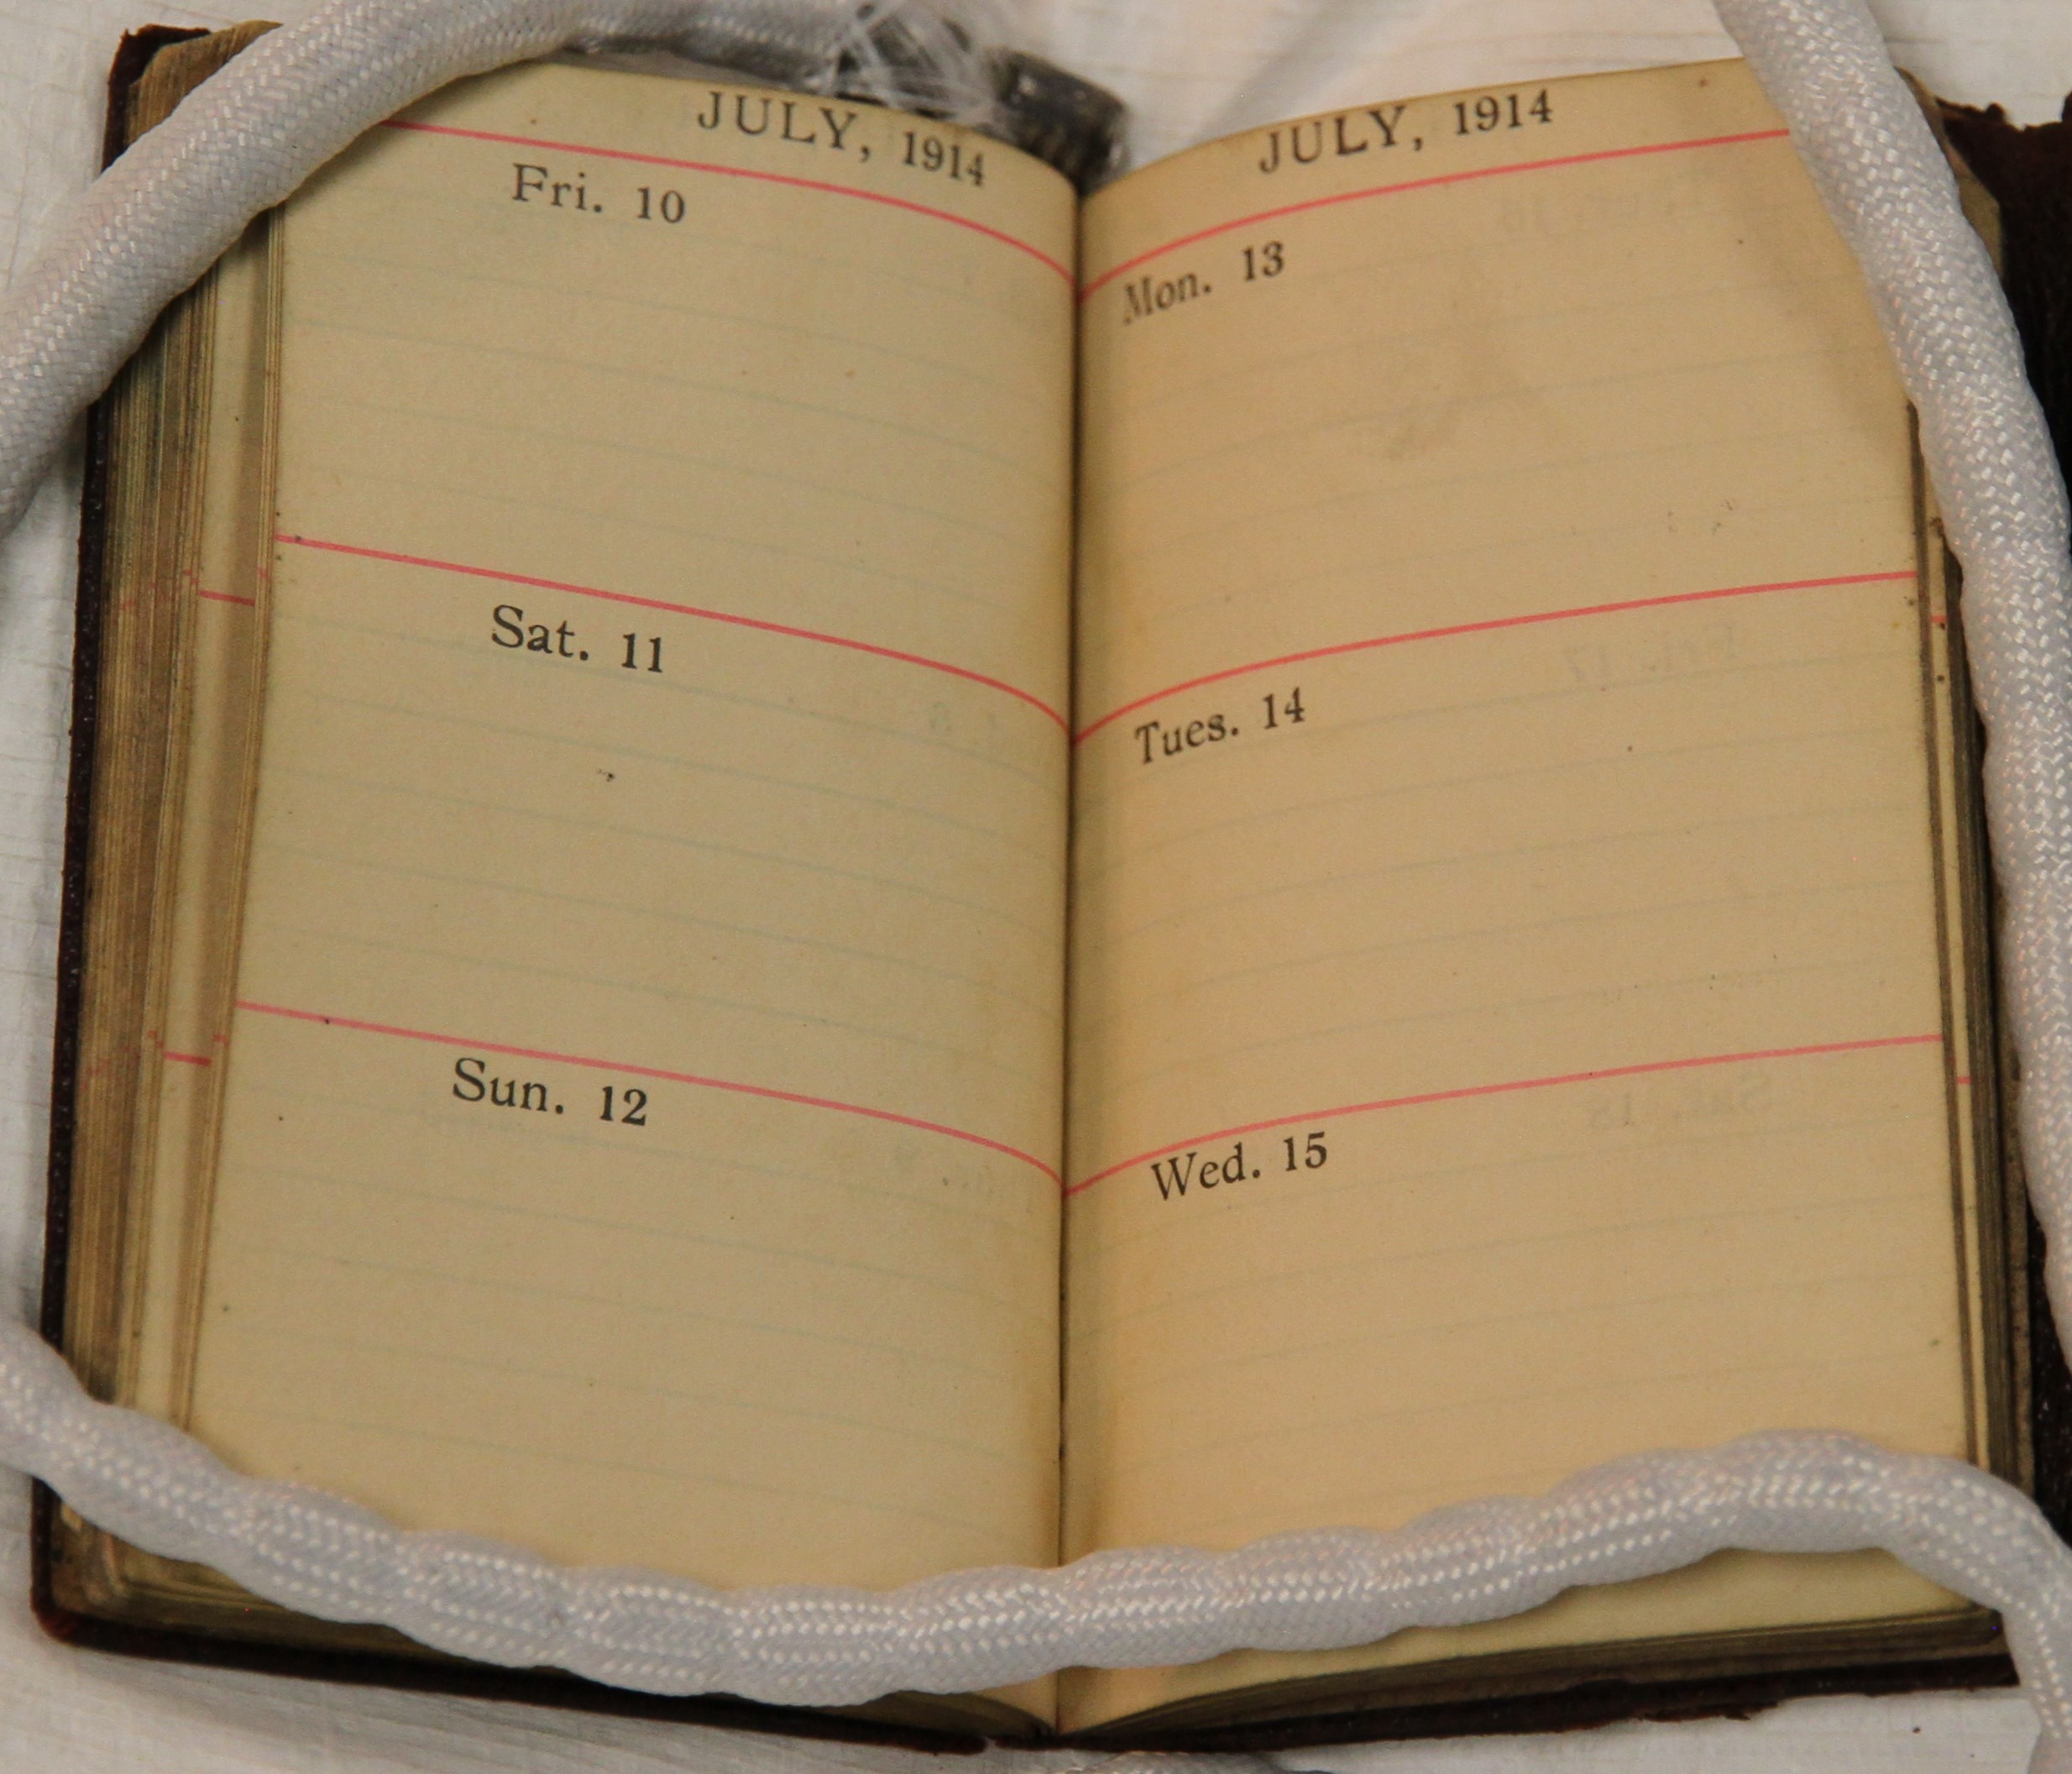 JULY, 1914
Fri. 10
Sat. 11
Sun. 12
JULY, 1914
Mon. 13
Tues. 14
Wed. 15